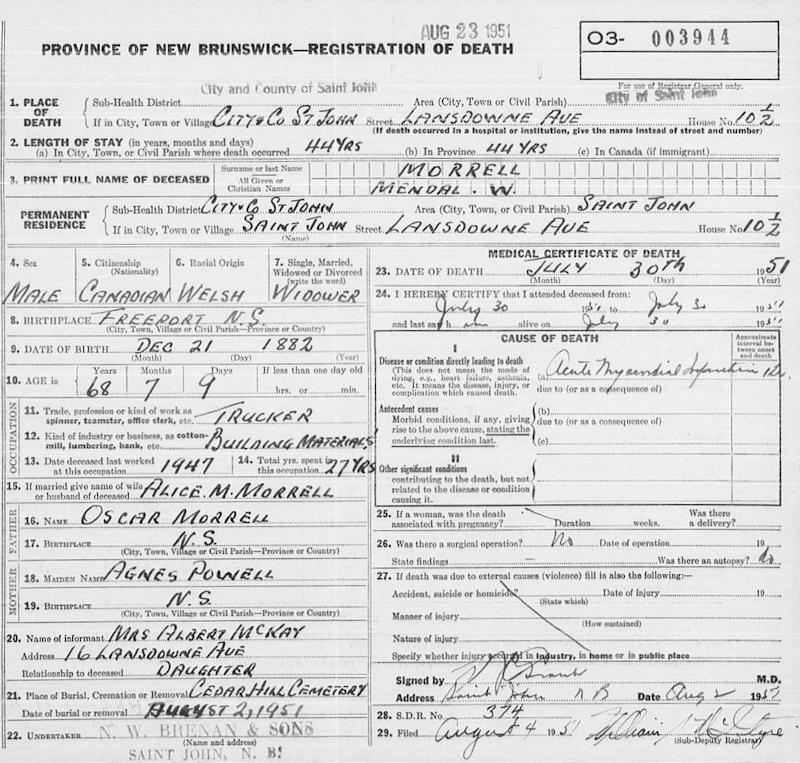 AUG 23 1951
PROVINCE OF NEW BRUNSWICK—REGISTRATION OF DEATH
O3- 003944
For use of Registrar General only.
City and County of Saint John
City of Saint John
1. PLACE OF DEATH
Sub-Health District
Area (City, Town or Civil Parish)
If in City, Town or Village CITY & CO ST JOHN Street LANSDOWNE AVE House No. 10 1/2
(If death occurred in a hospital or institution, give the name instead of street and number)
2. LENGTH OF STAY (in years, months and days)
(a) In City, Town, or Civil Parish where death occurred 44 YRS (b) In Province 44 YRS (c) In Canada (if immigrant)
3. PRINT FULL NAME OF DECEASED
Surname or last Name MORRELL
All Given or Christian Names MENDAL. W.
PERMANENT RESIDENCE
Sub-Health District CITY & CO ST JOHN Area (City, Town, or Civil Parish) SAINT JOHN
If in City, Town or Village SAINT JOHN Street LANSDOWNE AVE House No. 10 1/2
(Name)
4. Sex
MALE
5. Citizenship
(Nationality)
CANADIAN
6. Racial Origin
WELSH
7. Single, Married, Widowed or Divorced
(write the word)
WIDOWER
8. BIRTHPLACE FREEPORT N.S.
(City, Town, Village or Civil Parish—Province or Country)
9. DATE OF BIRTH DEC 21 1882
(Month) (Day) (Year)
10. AGE in
Years Months Days If less than one day old
68 7 9 hrs. or min.
OCCUPATION
11. Trade, profession or kind of work as spinner, teamster, office clerk, etc. TRUCKER
12. Kind of industry or business, as cotton-mill, lumbering, bank, etc. BUILDING MATERIALS
13. Date deceased last worked at this occupation 1947
14. Total yrs. spent in this occupation 27 YRS
15. If married give name of wife or husband of deceased ALICE. M. MORRELL
FATHER
16. NAME OSCAR MORRELL
17. BIRTHPLACE N.S.
(City, Town, Village or Civil Parish—Province or Country)
MOTHER
18. MAIDEN NAME AGNES POWELL
19. BIRTHPLACE N.S.
(City, Town, Village or Civil Parish—Province or Country)
20. Name of informant MRS ALBERT MCKAY
Address 16 LANSDOWNE AVE
Relationship to deceased DAUGHTER
21. Place of Burial, Cremation or Removal CEDAR HILL CEMETERY
Date of burial or removal AUGUST 2, 1951
22. UNDERTAKER N. W. BRENAN & SONS
(Name and address)
SAINT JOHN, N. B.
MEDICAL CERTIFICATE OF DEATH
23. DATE OF DEATH JULY 30th 1951
(Month) (Day) (Year)
24. I HEREBY CERTIFY that I attended deceased from:
July 30 1951 to July 30 1951
and last saw him alive on July 30 1951
CAUSE OF DEATH
Approximate interval between onset and death
I
Disease or condition directly leading to death
(This does not mean the mode of dying, e.g., heart failure, asthenia, etc. It means the disease, injury, or complication which caused death.
(a) Acute Myocardial Infarction
due to (or as a consequence of)
Antecedent causes
Morbid conditions, if any, giving rise to the above cause, stating the underlying condition last.
(b)
due to (or as a consequence of)
(c)
II
Other significant conditions
contributing to the death, but not related to the disease or condition causing it.
25. If a woman, was the death associated with pregnancy? Duration weeks. Was there a delivery?
26. Was there a surgical operation? No Date of operation 19
State findings — Was there an autopsy? No
27. If death was due to external causes (violence) fill in also the following:—
Accident, suicide or homicide? Date of injury 19
(State which)
Manner of injury
(How sustained)
Nature of injury
Specify whether injury occurred in industry, in home or in public place
Signed by M.D.
Address Saint John N B Date Aug 2 1951
28. S.D.R. No. 374
29. Filed August 4 1951 William McIntyre
(Sub-Deputy Registrar)